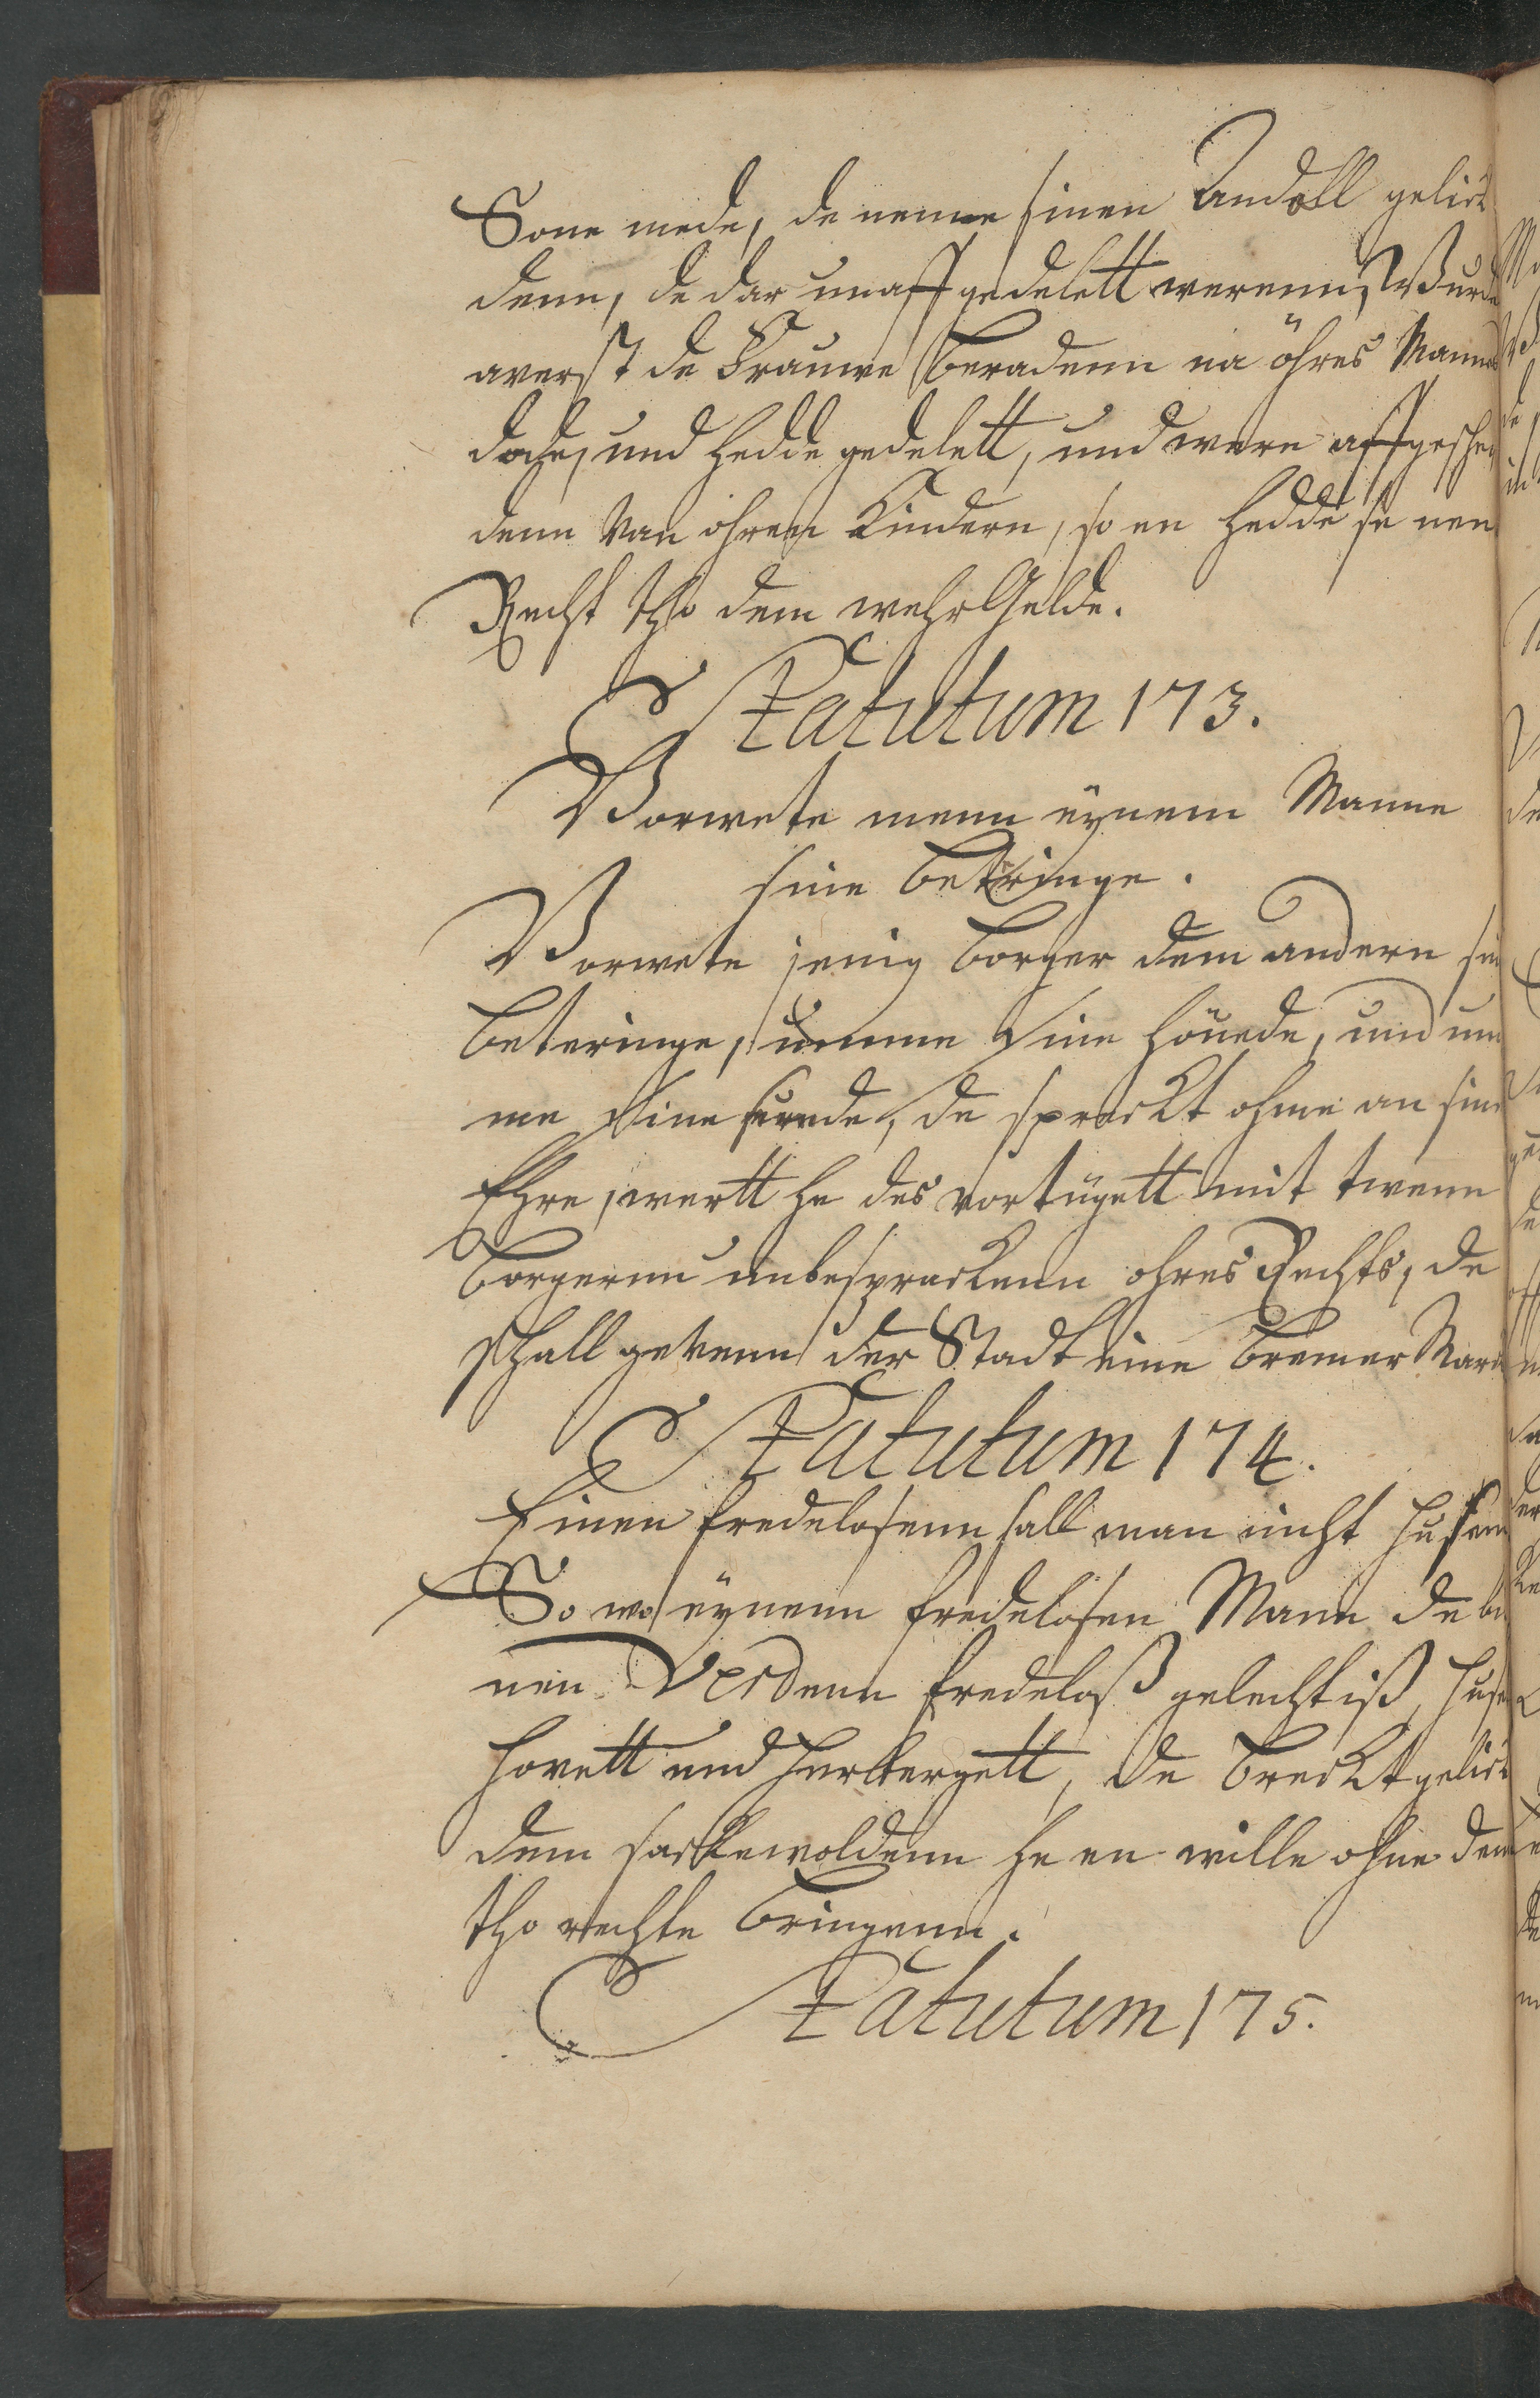 Sone mede, de neme sinen Andell gelick
denn, de dar unaffgedelett werenn, Wurde
averst de Frauwe beradenn na öhres Mannes
dode, und hedde gedelett, und were affgeschei
denn van ohren Kindern, so en hedde se nen
Recht tho dem wehrGelde.
Statutum 173.
Vorwete menn eynem Manne
sine beteringe.
Vorwete jenig borger dem andern sin
beteringe, umme sine höuede, und um
me sine sunde, de sprecket ohme an sine
Ehre, wertt he des vortügett mit twenn
borgernn unbesprackenn ohres Rechts, de
schall gevenn der Stadt eine bremer Marck
Statutum 174.
Einen fredelosenn sall man nicht husenn
So we eynenn fredelosen Mann de bin
nen Verdenn fredeloß gelecht iß, huset
hovett und herbergett, de breckt gelick
dem sackewoldenn he en wille ohne denn
tho rechte bringenn.
Statutum 175.